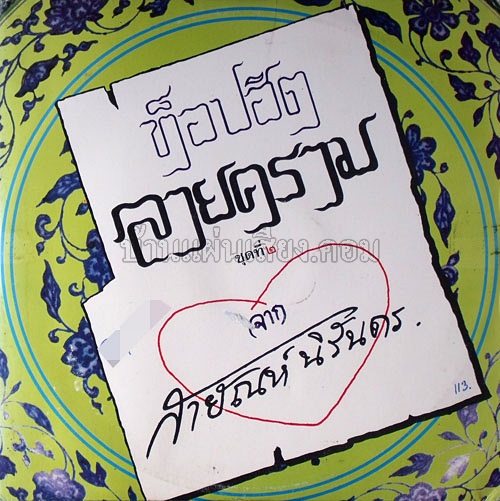 ท็อปฮิต
ลายคราม
บ้านแผ่นเสียง.คอม
ชุดที่ ๒
จาก
สายัณห์ นิรันดร.
113.